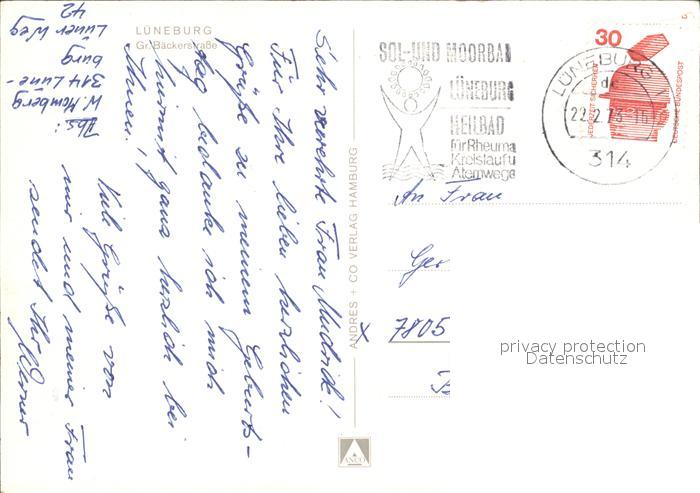 LÜNEBURG
Gr. Bäckerstraße
Abs.:
W. Momberg
314 Lüne-
burg
Lüner Weg
42
Sehr verehrte Frau Mudrid!
Für Ihre lieben herzlichen
Grüße zu meinem Geburts-
tag bedanke ich mich
hiermit ganz herzlich bei
Ihnen.
Viele Grüße von
mir und meiner Frau
sendet Ihr
Werner
ANDRES + CO VERLAG HAMBURG
ANCO
SOL- UND MOORBAD
LÜNEBURG
HEILBAD
für Rheuma
Kreislauf u
Atemwege
LÜNEBURG
dc
22.2.73-16
314
30
JEDERZEIT SICHERHEIT
DEUTSCHE BUNDESPOST
An Frau
Ger
X 7805
privacy protection
Datenschutz